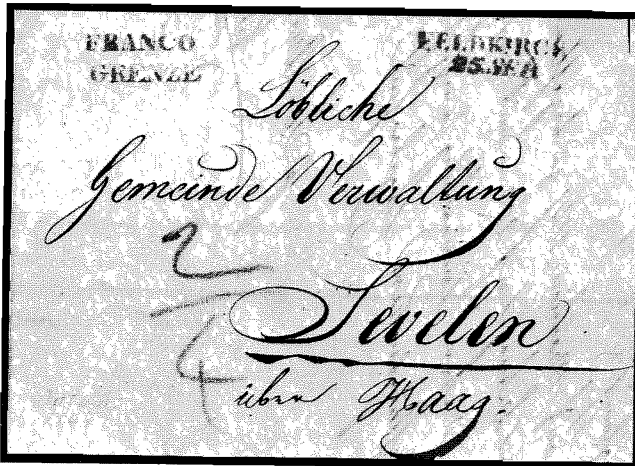 FRANCO
GRENZE
FELDKIRCH
Löbliche
Gemeinde Verwaltung
2
Sevelen
über Haag.